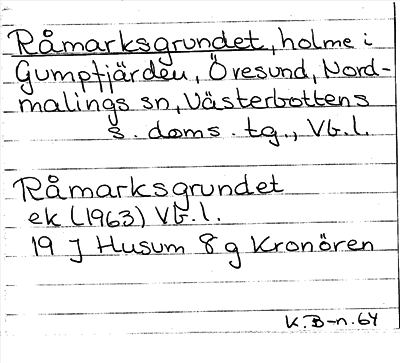 Råmarksgrundet, holme i
Gumpfjärden, Öresund, Nord-
malings sn, Västerbottens
s. doms. tg., Vb.l.
Råmarksgrundet
ek (1963) Vb.l.
19 J Husum 8 g Kronören
K.B-n.64